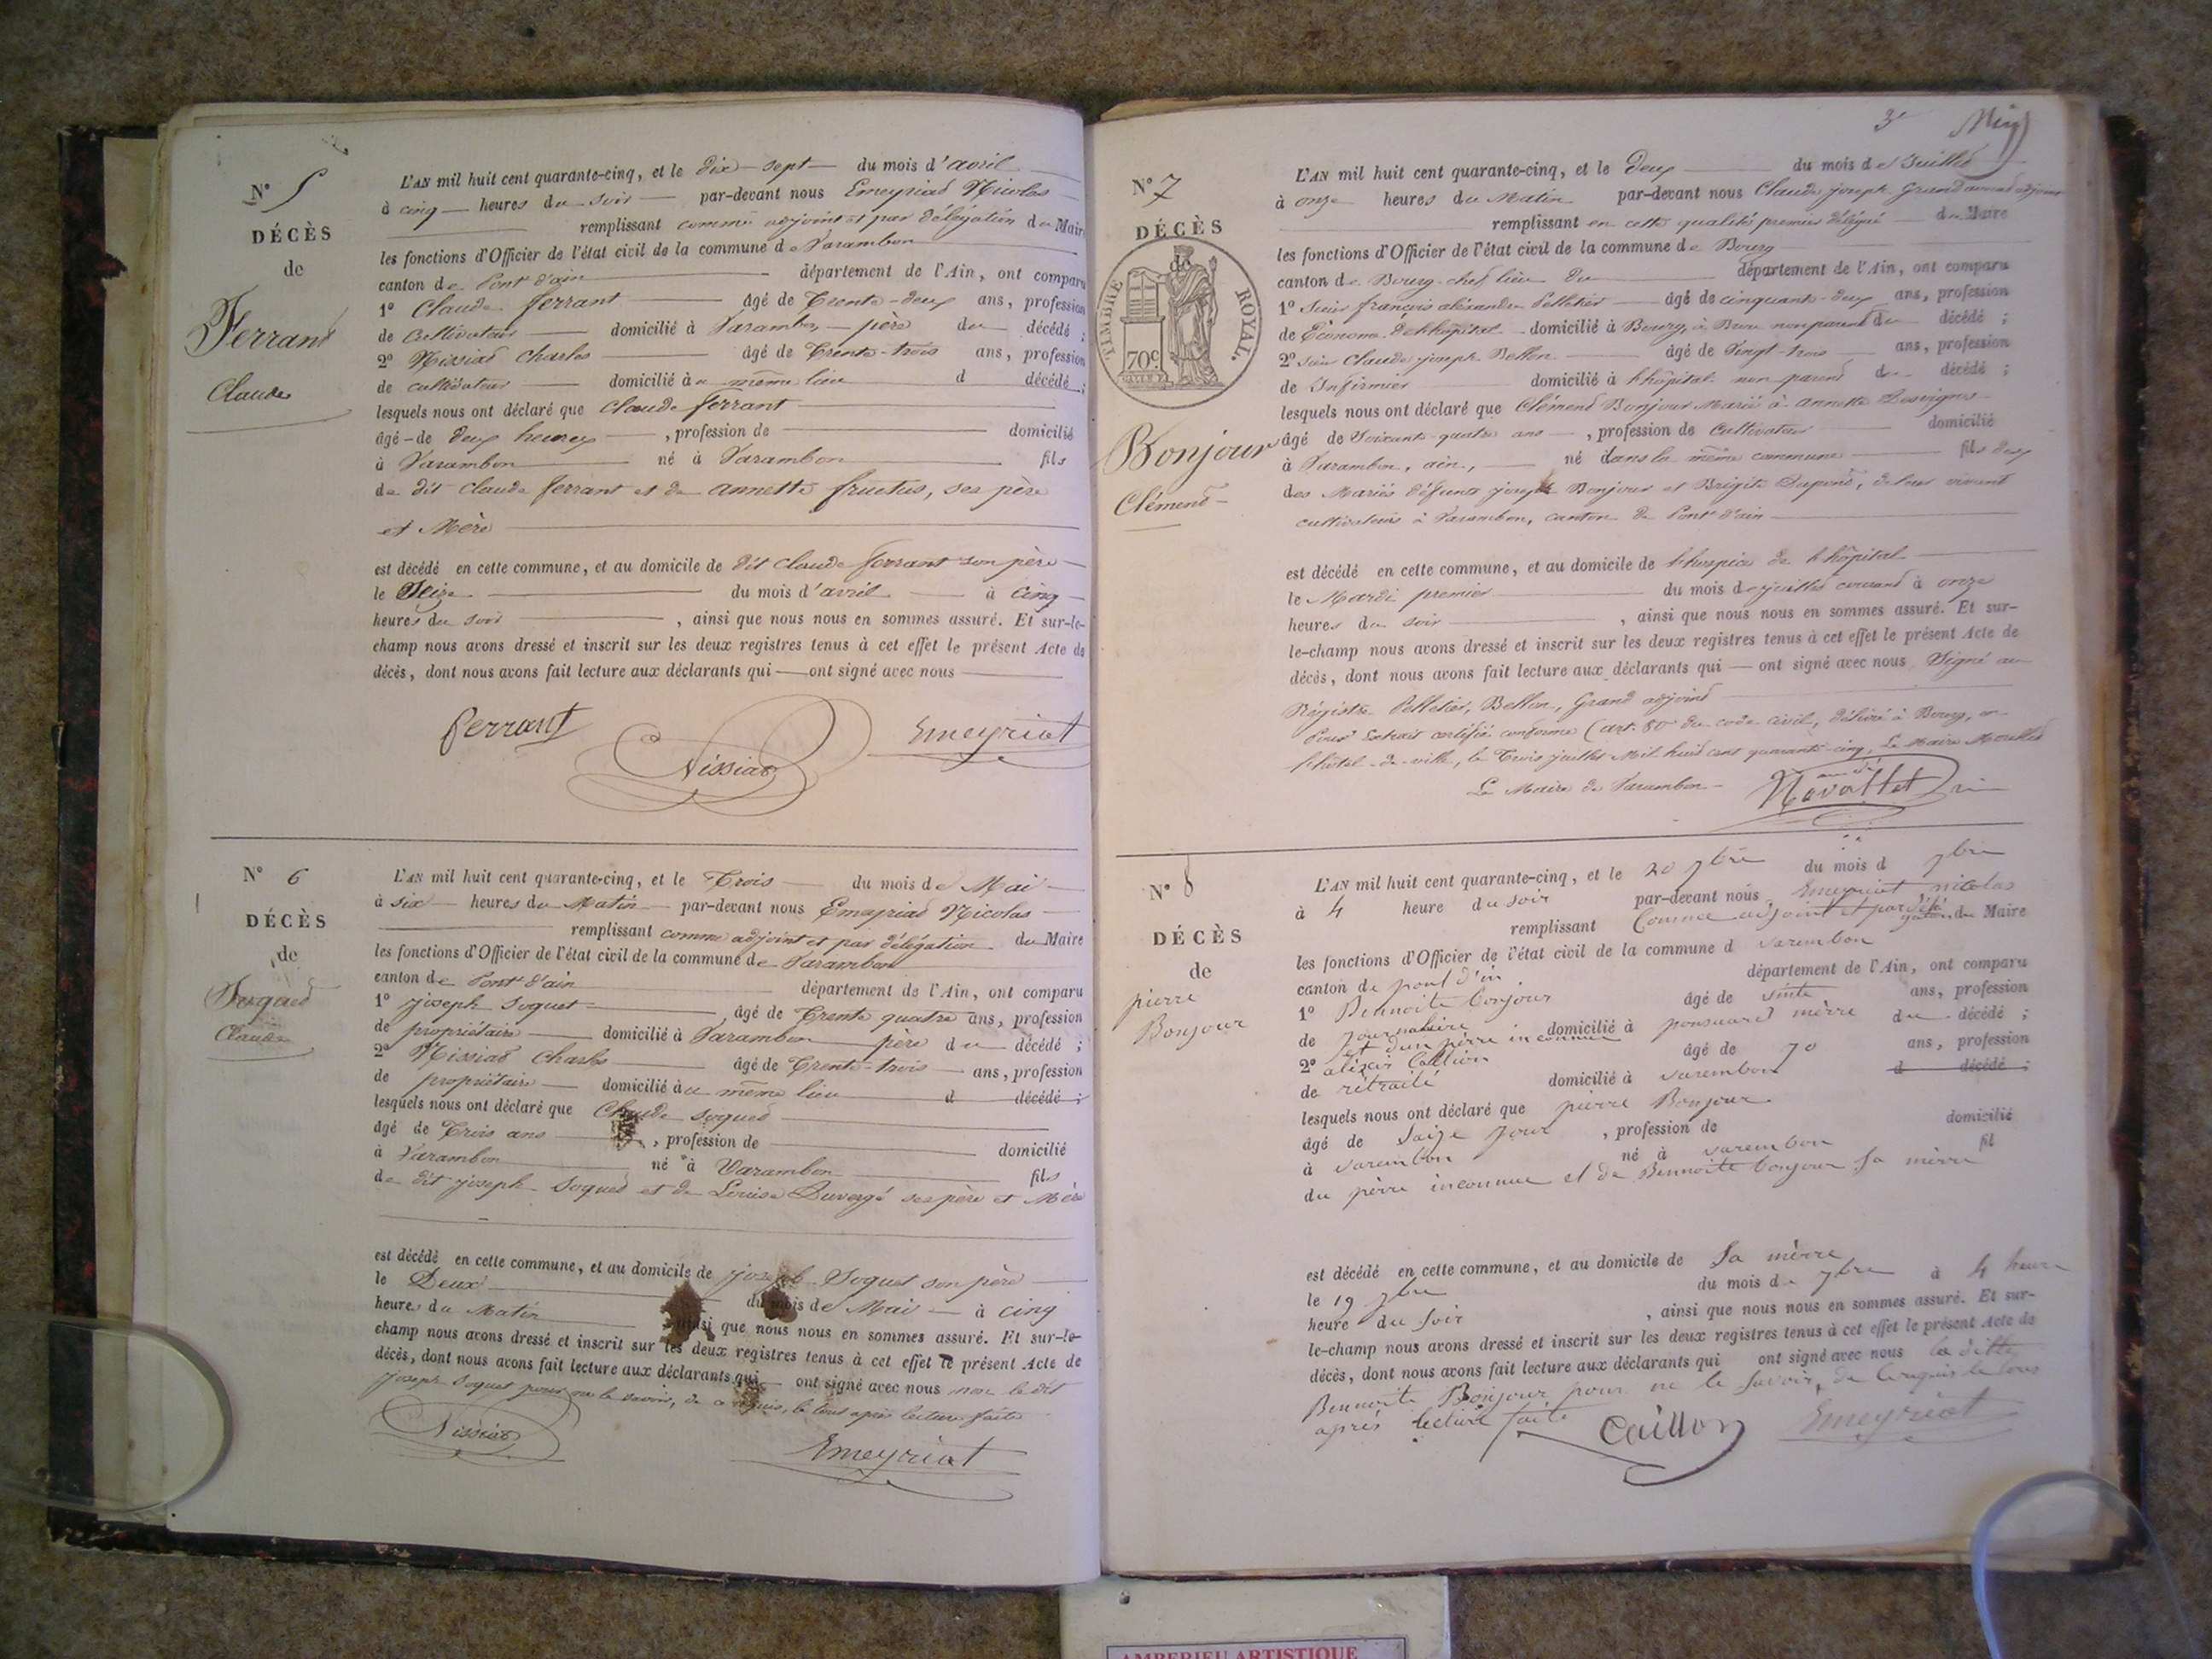 N° 5
DÉCÈS
de
Ferrand
Claude
L'AN mil huit cent quarante-cinq, et le dix-sept du mois d'avril
à cinq heures du soir par-devant nous Emeyriat Nicolas
remplissant comme adjoint et par délégation du Maire
les fonctions d'Officier de l'état civil de la commune de Varambon
canton de Pont d'ain département de l'Ain, ont comparu
1° Claude ferrant âgé de Trente-deux ans, profession
de Cultivateur domicilié à Varambon père du décédé ;
2° Nissiat Charles âgé de Trente-trois ans, profession
de cultivateur domicilié au même lieu d décédé ;
lesquels nous ont déclaré que Claude ferrant
âgé de deux heures , profession de domicilié
à Varambon né à Varambon fils
de dit Claude ferrant et de annette fructus, ses père
et Mère
est décédé en cette commune, et au domicile de dit Claude ferrant son père
le Seize du mois d'avril à Cinq
heures du soir , ainsi que nous nous en sommes assuré. Et sur-le-
champ nous avons dressé et inscrit sur les deux registres tenus à cet effet le présent Acte de
décès, dont nous avons fait lecture aux déclarants qui ont signé avec nous
ferrant Nissiat Emeyriat
N° 6
DÉCÈS
de
Claude
L'AN mil huit cent quarante-cinq, et le Trois du mois de Mai
à six heures du Matin par-devant nous Emeyriat Nicolas
remplissant comme adjoint et par délégation du Maire
les fonctions d'Officier de l'état civil de la commune de Varambon
canton de Pont d'ain département de l'Ain, ont comparu
1° joseph Soquet âgé de Trente quatre ans, profession
de propriétaire domicilié à Varambon père du décédé ;
2° Nissiat Charles âgé de Trente-trois ans, profession
de propriétaire domicilié au même lieu d décédé ;
lesquels nous ont déclaré que Claude Soqued
âgé de Trois ans , profession de domicilié
à Varambon né à Varambon fils
de dit joseph Soqued et de Louise Duvergé ses père et Mère
est décédé en cette commune, et au domicile de joseph Soquet son père
le Deux du mois de Mai à cinq
heures du Matin ainsi que nous nous en sommes assuré. Et sur-le-
champ nous avons dressé et inscrit sur les deux registres tenus à cet effet le présent Acte de
décès, dont nous avons fait lecture aux déclarants qui ont signé avec nous non le dit
joseph Soquet pour ne le savoir, de ce requis, le tout après lecture faite
Nissiat Emeyriat
3e
N° 7
DÉCÈS
de
TIMBRE ROYAL.
70c.
Bonjour
Clémend
L'AN mil huit cent quarante-cinq, et le deux du mois de Juillet
à onze heures du Matin par-devant nous Claude joseph Grand avoué adjoint
remplissant en cette qualité premier délégué du Maire
les fonctions d'Officier de l'état civil de la commune de Bourg
canton de Bourg chef lieu du département de l'Ain, ont comparu
1° Sieur françois alexandre Pelletier âgé de cinquante-deux ans, profession
de Économe de l'hôpital domicilié à Bourg, à Brou non parend du décédé ;
2° Sieur Claude joseph Bellon âgé de Vingt-trois ans, profession
de Infirmier domicilié à l'hôpital non parend du décédé ;
lesquels nous ont déclaré que Clémend Bonjour Marié à annette Desvignes
âgé de Soixante-quatre ans , profession de Cultivateur domicilié
à Varambon, ain, né dans la même commune fils des
des Mariés défunts joseph Bonjour et Brigite Dupond, de leur vivant
cultivateurs à Varambon, canton de Pont d'ain
est décédé en cette commune, et au domicile de l'hospice de l'hôpital
le Mardi premier du mois de juillet courand à onze
heures du soir , ainsi que nous nous en sommes assuré. Et sur-
le-champ nous avons dressé et inscrit sur les deux registres tenus à cet effet le présent Acte de
décès, dont nous avons fait lecture aux déclarants qui ont signé avec nous Signé au
Régistre Pelletier, Bellon, Grand adjoind
Pour Extrait certifié conforme (art. 80 du code civil, délivré à Bourg, en
l'hôtel-de-ville, le Trois juillet Mil huit cent quarante-cinq, Le Maire
Le Maire de Varambon
N° 8
DÉCÈS
de
pierre
Bonjour
L'AN mil huit cent quarante-cinq, et le 20 7bre du mois d 7bre
à 4 heure du soir par-devant nous Emeyriat nicolas
remplissant Comme adjoint et par délégation du Maire
les fonctions d'Officier de l'état civil de la commune d varembon
canton de pont d'in département de l'Ain, ont comparu
1° Bennoite bonjour âgé de vinte ans, profession
de journalière domicilié à mèrre du décédé ;
et d'un pèrre inconnue
2° alixis Caillion âgé de 70 ans, profession
de retraité domicilié à varembon d décédé ;
lesquels nous ont déclaré que pierre Bonjour
âgé de Saize jour , profession de domicilié
à varembon né à varembon fil
du pèrre inconnue et de Bennoite bonjour sa mèrre
est décédé en cette commune, et au domicile de Sa mèrre
le 19 7bre du mois de 7bre à 4 heure
heure du soir , ainsi que nous nous en sommes assuré. Et sur-
le-champ nous avons dressé et inscrit sur les deux registres tenus à cet effet le présent Acte de
décès, dont nous avons fait lecture aux déclarants qui ont signé avec nous la ditte
Bennoite Bonjour pour ne le savoir, de ce requis le tous
après lecture faite Caillon Emeyriat
AMBERIEU ARTISTIQUE